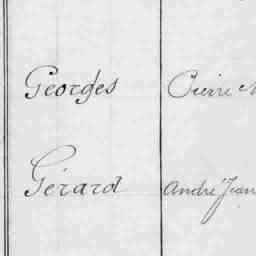 Georges Pierre
Gérard André Jean